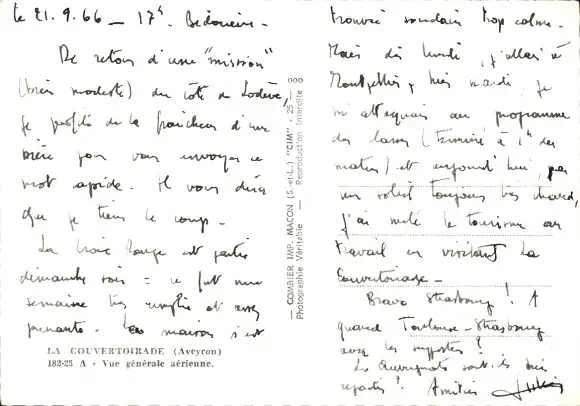 le 21.9.66 — 17h. Bédarieux -
De retour d'une "mission"
(très modeste) du côté de Lodève,
je profite de la fraîcheur d'une
bière pour vous envoyer ce
mot rapide. Il vous dira
que je tiens le coup.
La Croix Rouge est partie
dimanche soir = ce fut une
semaine très remplie et assez
prenante. La maison s'est
LA COUVERTOIRADE (Aveyron)
182-25 A - Vue générale aérienne.
— COMBIER IMP. MACON (S.-et-L.) "CIM" - 25 - 000
Photographie Véritable — Reproduction Interdite
trouvée soudain trop calme.
Mais dès lundi, j'allais à
Montpellier, hier mardi, je
m'attaquais au programme
des (terminé à 1h du
matin) et aujourd'hui, par
un soleil toujours très chaud,
j'ai mêlé le tourisme au
travail en visitant La
Couvertoirade -
Bravo Strasbourg ! A
quand Toulouse - Strasbourg
avec les supporters ?
Les Auvergnats sont-ils
repartis ? Amitiés